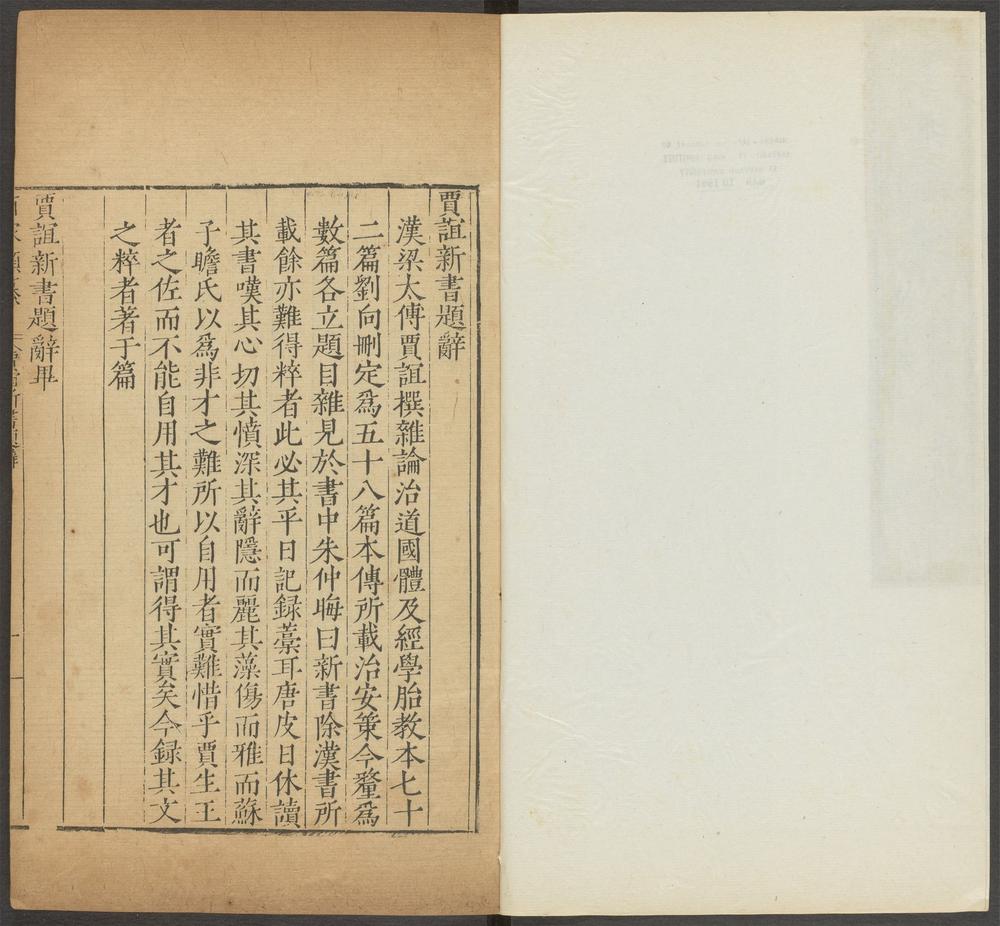 賈誼新書題辭
漢梁太傅賈誼撰雜論治道國體及經學胎教本七十
二篇劉向刪定爲五十八篇本傳所載治安策今釐爲
數篇各立題目雜見於書中朱仲晦曰新書除漢書所
載餘亦難得粹者此必其平日記録藁耳唐皮日休讀
其書嘆其心切其憤深其辭隱而麗其藻傷而雅而蘇
子瞻氏以爲非才之難所以自用者實難惜乎賈生王
者之佐而不能自用其才也可謂得其實矣今録其文
之粹者著于篇
賈誼新書題辭畢